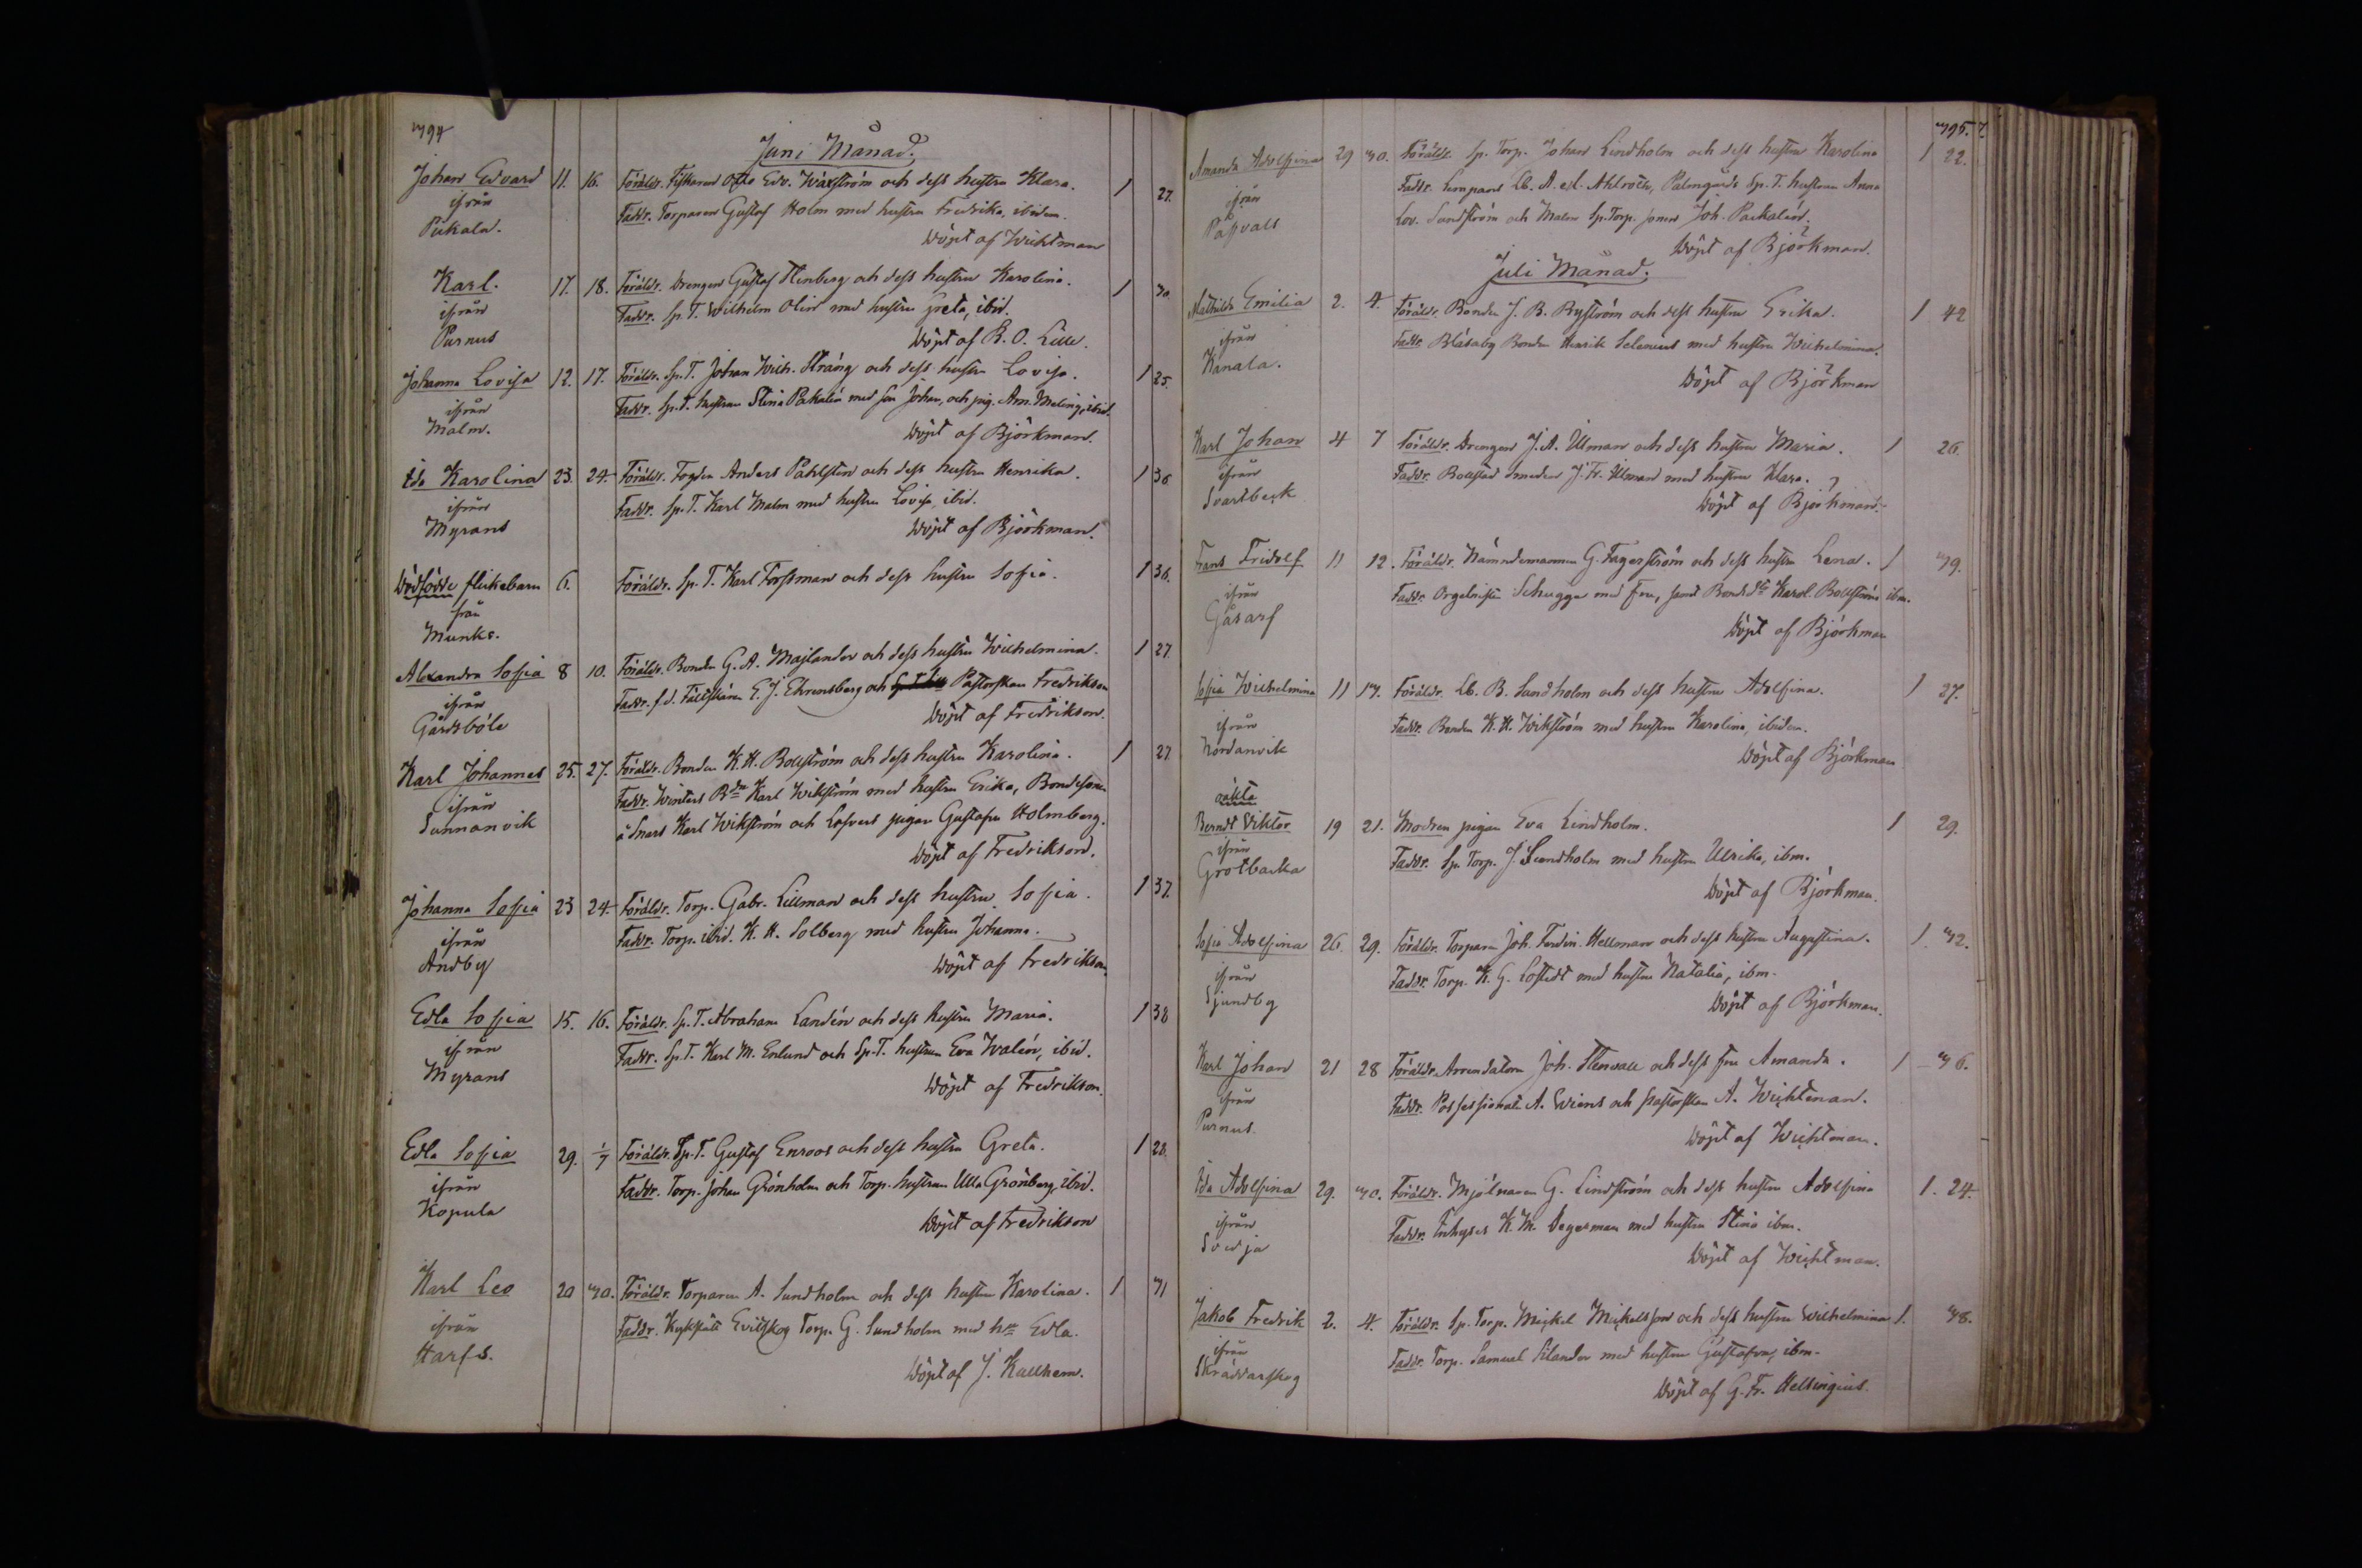 394
Juni Månad.
Johan Edvard 11. 16. Föräldr. Fiskaren Otto Edv. Wäxström och dess hustru Klara. 1 27.
ifrån
Pickala.
Faddr. Torparen Gustaf Holm med hustru Fredrika, ibidem.
Döpt af Wichtman
Karl. 17. 18. Föräldr. Drengen Gustaf Stenberg och dess hustru Karolina. 1 30.
ifrån
Purnus
Faddr. Sp. T. Wilhelm Olin med hustru Greta, ibid.
Döpt af R. O. Lille.
Johanna Lovisa 12. 17. Föräldr. Sp. T. Johan Wilh. Sträng och dess hustru Lovisa. 1 25.
ifrån
Malm.
Faddr. Sp. T. hustrun Stina Pakalén med son Johan, och pig. Am. Meling, ibid.
Döpt af Björkman.
Ida Karolina 23. 24. Föräldr. Fogden Anders Påhlsten och dess hustru Henrika. 1 36
ifrån
Myrans
Faddr. Sp. T. Karl Malm med hustru Lovisa, ibid.
Döpt af Björkman.
Dödfödde flickebarn 6. Föräldr. Sp. T. Karl Forssman och dess hustru Sofia. 1 36.
från
Munks.
Alexandra Sofia 8 10. Föräldr. Bonden G. A. Majlander och dess hustru Wilhelmina. 1 27.
ifrån
Gårdsböle
Faddr. f.d. Fältskären E. J. Ehrensberg och Pastorskan Fredrikson
Döpt af Fredrikson.
Karl Johannes 25. 27. Föräldr. Bonden K. H. Bollström och dess hustru Karolina. 1 27
ifrån
Sunnanvik
Faddr. Winters Bdn Karl Wikström med hustru Erika, Bondesonen
å Snars Karl Wikström och Lofvers pigan Gustafva Holmberg.
Döpt af Fredrikson.
Johanna Sofia 23 24. Föräldr. Torp. Gabr. Lillman och dess hustru Sofia. 1 37.
ifrån
Andby
Faddr. Torp. ibid. K. H. Solberg med hustru Johanna.
Döpt af Fredrikson.
Edla Sofia 15. 16. Föräldr. Sp. T. Abraham Landén och dess hustru Maria. 1 38
ifrån
Myrans
Faddr. Sp. T. Karl M. Enlund och Sp. T. hustrun Eva Walén, ibid.
Döpt af Fredrikson.
Edla Sofia 29. 1/7 Föräldr. Sp. T. Gustaf Enroos och dess hustru Greta. 1 28.
ifrån
Kopula
Faddr. Torp. Johan Grönholm och Torp. hustrun Ulla Grönberg, ibid.
Döpt af Fredrikson
Karl Leo 20 30. Föräldr. Torparen A. Sundholm och dess hustru Karolina. 1 31
ifrån
Harfs.
Faddr. Kyrkslätt Evitskog Torp. G. Sundholm med hu Edla.
Döpt af J. Kallhem.
395.
Amanda Adolfina 29 30. Föräldr. Sp. Torp. Johan Lindholm och dess hustru Karolina 1 22.
ifrån
Påfvals
Faddr. Sempars Lb. A. ed. Ahlroth, Palmgårds Sp. T. hustrun Anna
Lov. Sandström och Malm Sp. Torp. sonen Joh. Packalén.
Döpt af Björkman.
Juli Månad.
Mathilda Emilia 2. 4. Föräldr. Bonden J. B. Byström och dess hustru Erika. 1 42
ifrån
Kanala.
Faddr. Blåsaby Bonden Henrik Selenius med hustru Wilhelmina.
Döpt af Björkman
Karl Johan 4 7 Föräldr. Drengen J. A. Ulman och dess hustru Maria. 1 26.
ifrån
Svartbeck
Faddr. Bollstad smeden J. Fr. Ulman med hustru Klara.
Döpt af Björkman.
Frans Fridolf 11 12. Föräldr. Nämndemannen G. Fagerström och dess hustru Lena. 1 39.
ifrån
Gåsarf
Faddr. Orgelnisten Schugge med Fru, samt Bondedtr Karol. Bollström ibm.
Döpt af Björkman
Sofia Wilhelmina 11 13. Föräldr. Lb. B. Sundholm och dess hustru Adolfina. 1 27.
ifrån
Nordanvik
Faddr. Bonden K. H. Wikström med hustru Karolina, ibidem.
Döpt af Björkman
oäkta
Berndt Viktor 19 21. Modren pigan Eva Lindholm. 1 29.
ifrån
Grotbacka
Faddr. Sp. Torp. J. Sundholm med hustru Ulrika, ibm.
Döpt af Björkman.
Sofia Adolfina 26. 29. Föräldr. Torparen Joh. Ferdin. Hellman och dess hustru Augustina. 1. 32.
ifrån
Sjundby
Faddr. Torp. K. G. Lostedt med hustru Natalia, ibm.
Döpt af Björkman.
Karl Johan 21 28 Föräldr. Arrendatorn Joh. Stenvall och dess fru Amanda. 1 36.
ifrån
Purnus.
Faddr. Possessionaten A. Wiens och pastorskan A. Wichtman.
Döpt af Wichtman.
Ida Adolfina 29. 30. Föräldr. Mjölnaren G. Lindström och dess hustru Adolfina 1. 24.
ifrån
Svedja
Faddr. Inhyses K. M. Degerman med hustru Stina ibm.
Döpt af Wichtman.
Jakob Fredrik 2. 4. Föräldr. Sp. Torp. Mickel Mickelsson och dess hustru Wilhelmina 1. 38.
ifrån
Skräddarskog
Faddr. Torp. Samuel Silander med hustru Gustafva, ibm.
Döpt af G. Fr. Helsingius.